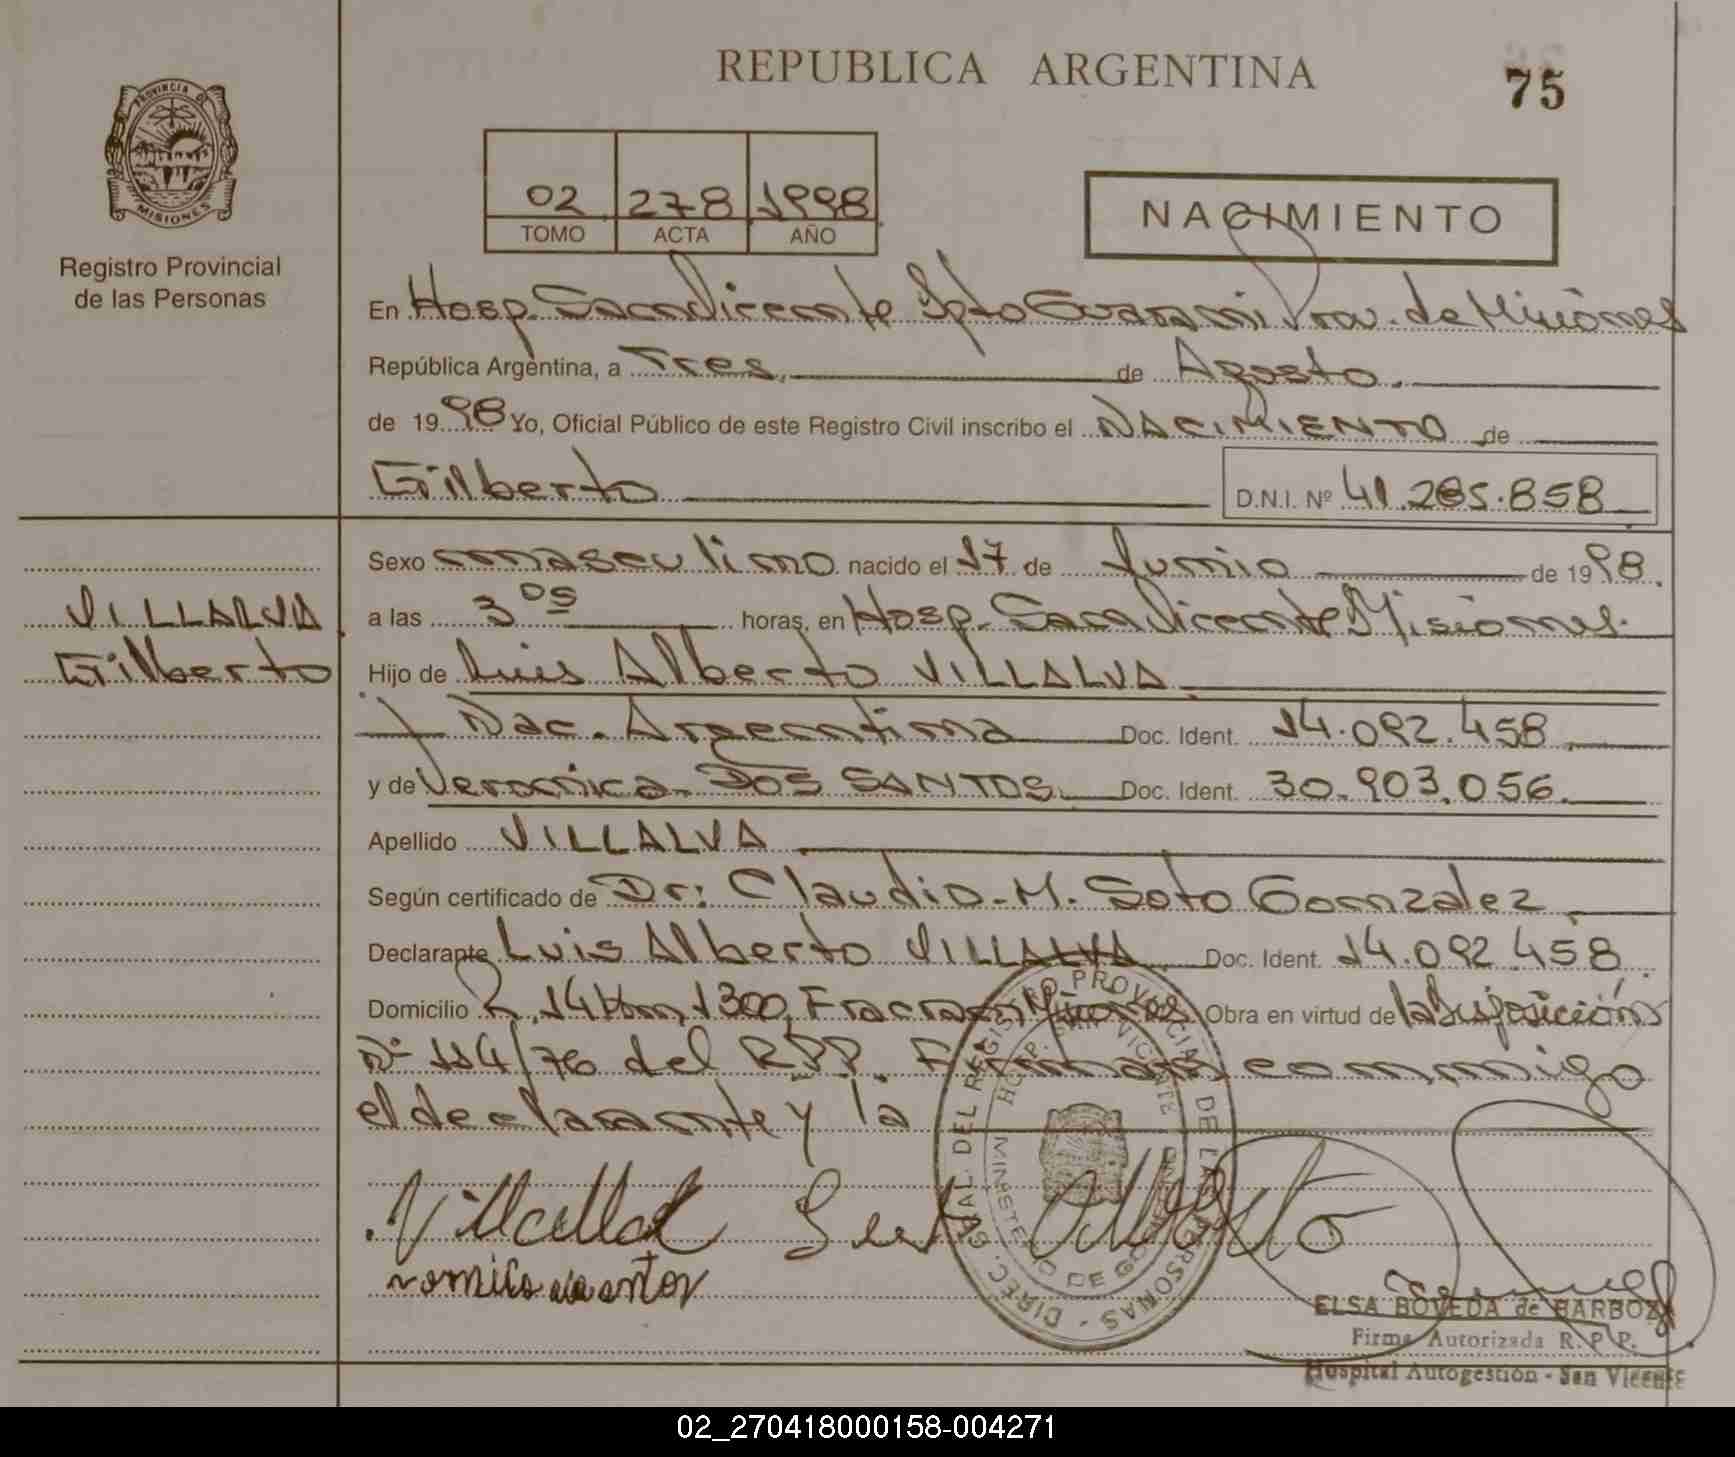 REPUBLICA ARGENTINA
75
PROVINCIA DE
MISIONES
Registro Provincial
de las Personas
02 278 1998
TOMO ACTA AÑO
NACIMIENTO
En Hosp. San Vicente Dpto Guarani Prov. de Misiones
República Argentina, a Tres de Agosto.
de 1998 Yo, Oficial Público de este Registro Civil inscribo el NACIMIENTO de
Gilberto D.N.I. Nº 41.285.858
Sexo masculino nacido el 17 de Junio de 1998.
VILLALVA
Gilberto
a las 3 00 horas, en Hosp. San Vicente Misiones.
Hijo de Luis Alberto VILLALVA
Nac. Argentina Doc. Ident. 14.092.458
y de Veronica DOS SANTOS Doc. Ident. 30.903.056.
Apellido VILLALVA
Según certificado de Dr: Claudio M. Soto Gonzalez
Declarante Luis Alberto VILLALVA Doc. Ident. 14.092.458.
Domicilio R. 14 Km 1300, Fracran, Misiones Obra en virtud de la Disposición
Nº 114/76 del RPP. Firman conmigo
el declarante y la
DIREC. GRAL. DEL REGISTRO PROVINCIAL DE LAS PERSONAS -
HOSP. SAN VICENTE
MINISTERIO DE GOBIERNO
ELSA BOVEDA de BARBOZA
Firma Autorizada R. P. P.
Hospital Autogestión - San Vicente
02_270418000158-004271